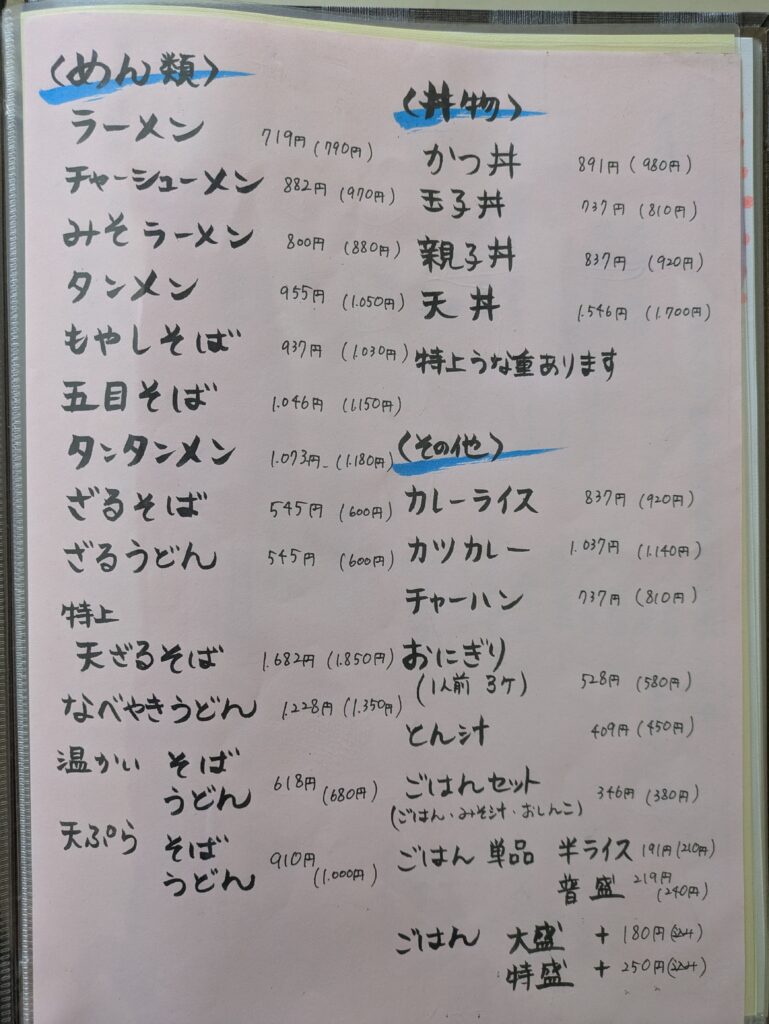 〈めん類〉
ラーメン 719円(790円)
チャーシューメン 882円(970円)
みそラーメン 800円(880円)
タンメン 955円(1.050円)
もやしそば 937円(1.030円)
五目そば 1.046円(1.150円)
タンタンメン 1.073円(1.180円)
ざるそば 545円(600円)
ざるうどん 545円(600円)
特上
天ざるそば 1.682円(1.850円)
なべやきうどん 1.228円(1.350円)
温かい そば
うどん 618円(680円)
天ぷら そば
うどん 910円(1.000円)
〈丼物〉
かつ丼 891円(980円)
玉子丼 737円(810円)
親子丼 837円(920円)
天丼 1.546円(1.700円)
特上うな重あります
〈その他〉
カレーライス 837円(920円)
カツカレー 1.037円(1.140円)
チャーハン 737円(810円)
おにぎり
(1人前 3ケ) 528円(580円)
とん汁 409円(450円)
ごはんセット 346円(380円)
(ごはん・みそ汁・おしんこ)
ごはん 単品 半ライス 191円(210円)
普盛 219円(240円)
ごはん 大盛 +180円(込み)
特盛 +250円(込み)